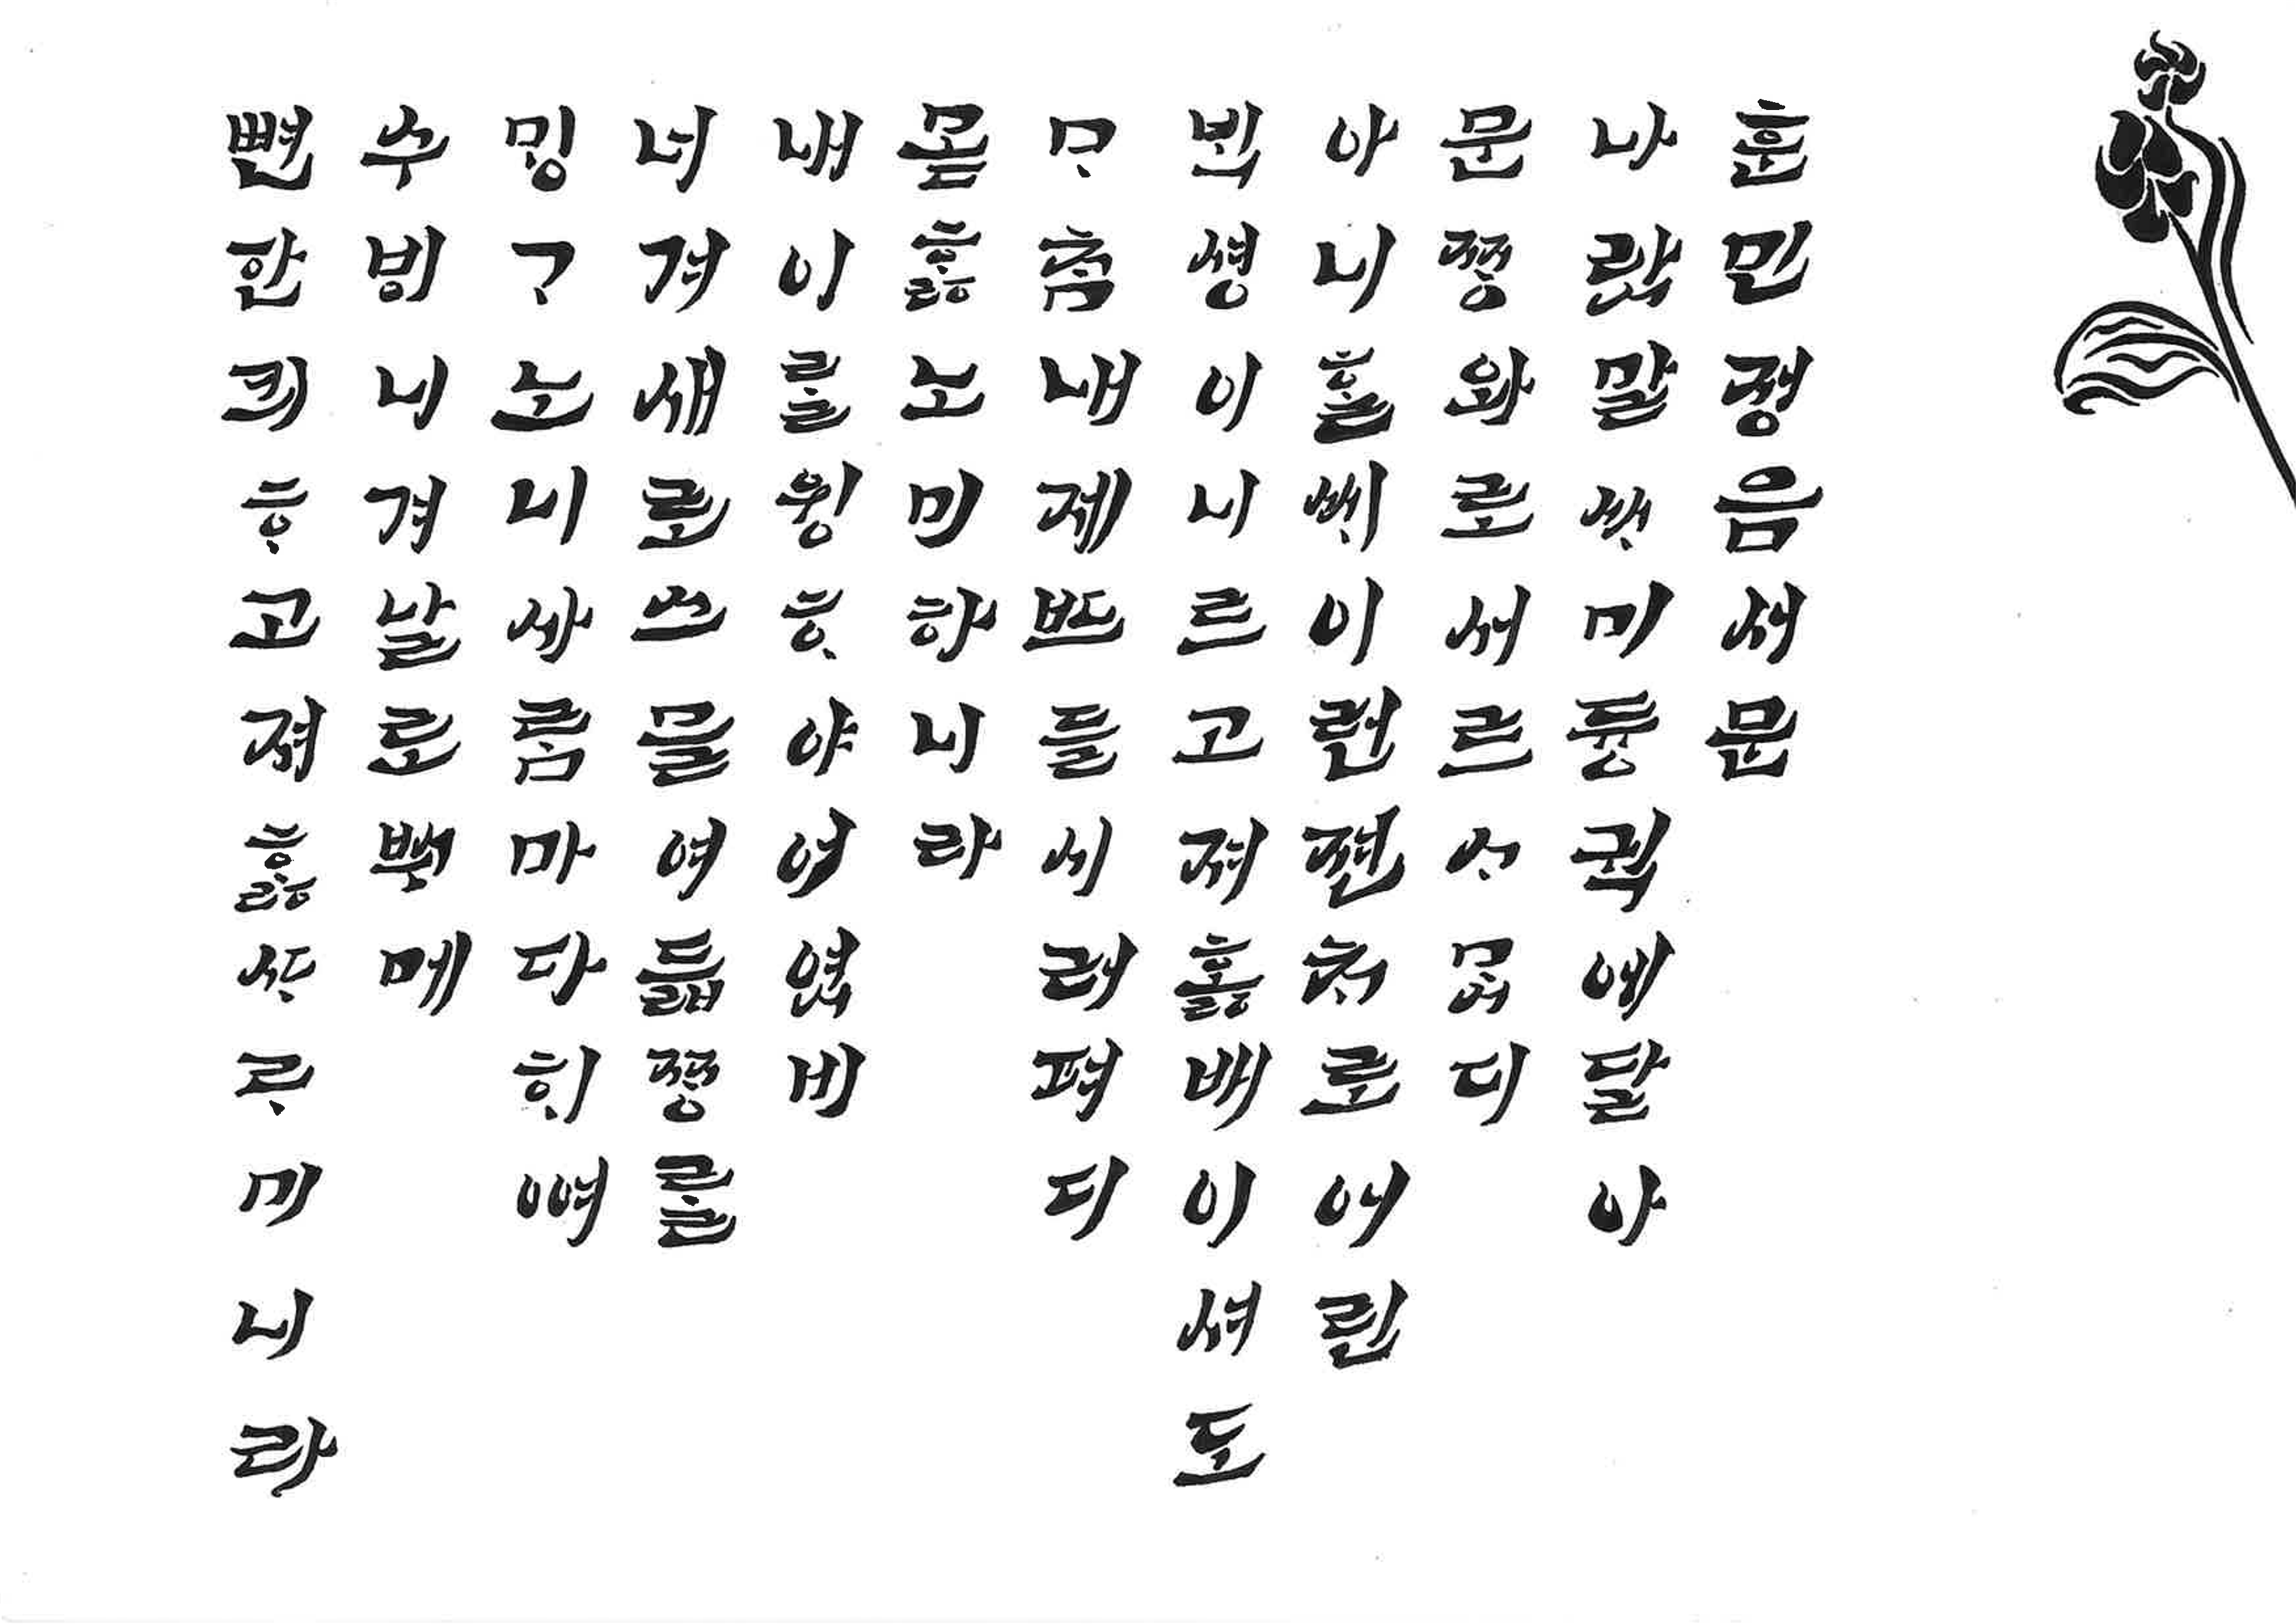 훈민정음서문
나랏말ᄊᆞ미듕귁에달아
문ᄍᆞᆼ와로서르ᄉᆞᄆᆞᆺ디
아니ᄒᆞᆯᄊᆡ이런젼ᄎᆞ로어린
빅셩이니르고져홇배이셔도
ᄆᆞᄎᆞᆷ내제ᄠᅳ들시러펴디
몯ᄒᆞᇙ노미하니라
내이ᄅᆞᆯ윙ᄒᆞ야어엿비
너겨새로스믈여듧ᄍᆞᆼᄅᆞᆯ
ᄆᆡᆼᄀᆞ노니사ᄅᆞᆷ마다ᄒᆡᅇᅧ
수ᄫᅵ니겨날로ᄡᅮ메
뼌한킈ᄒᆞ고져ᄒᆞᇙᄯᆞᄅᆞ미니라